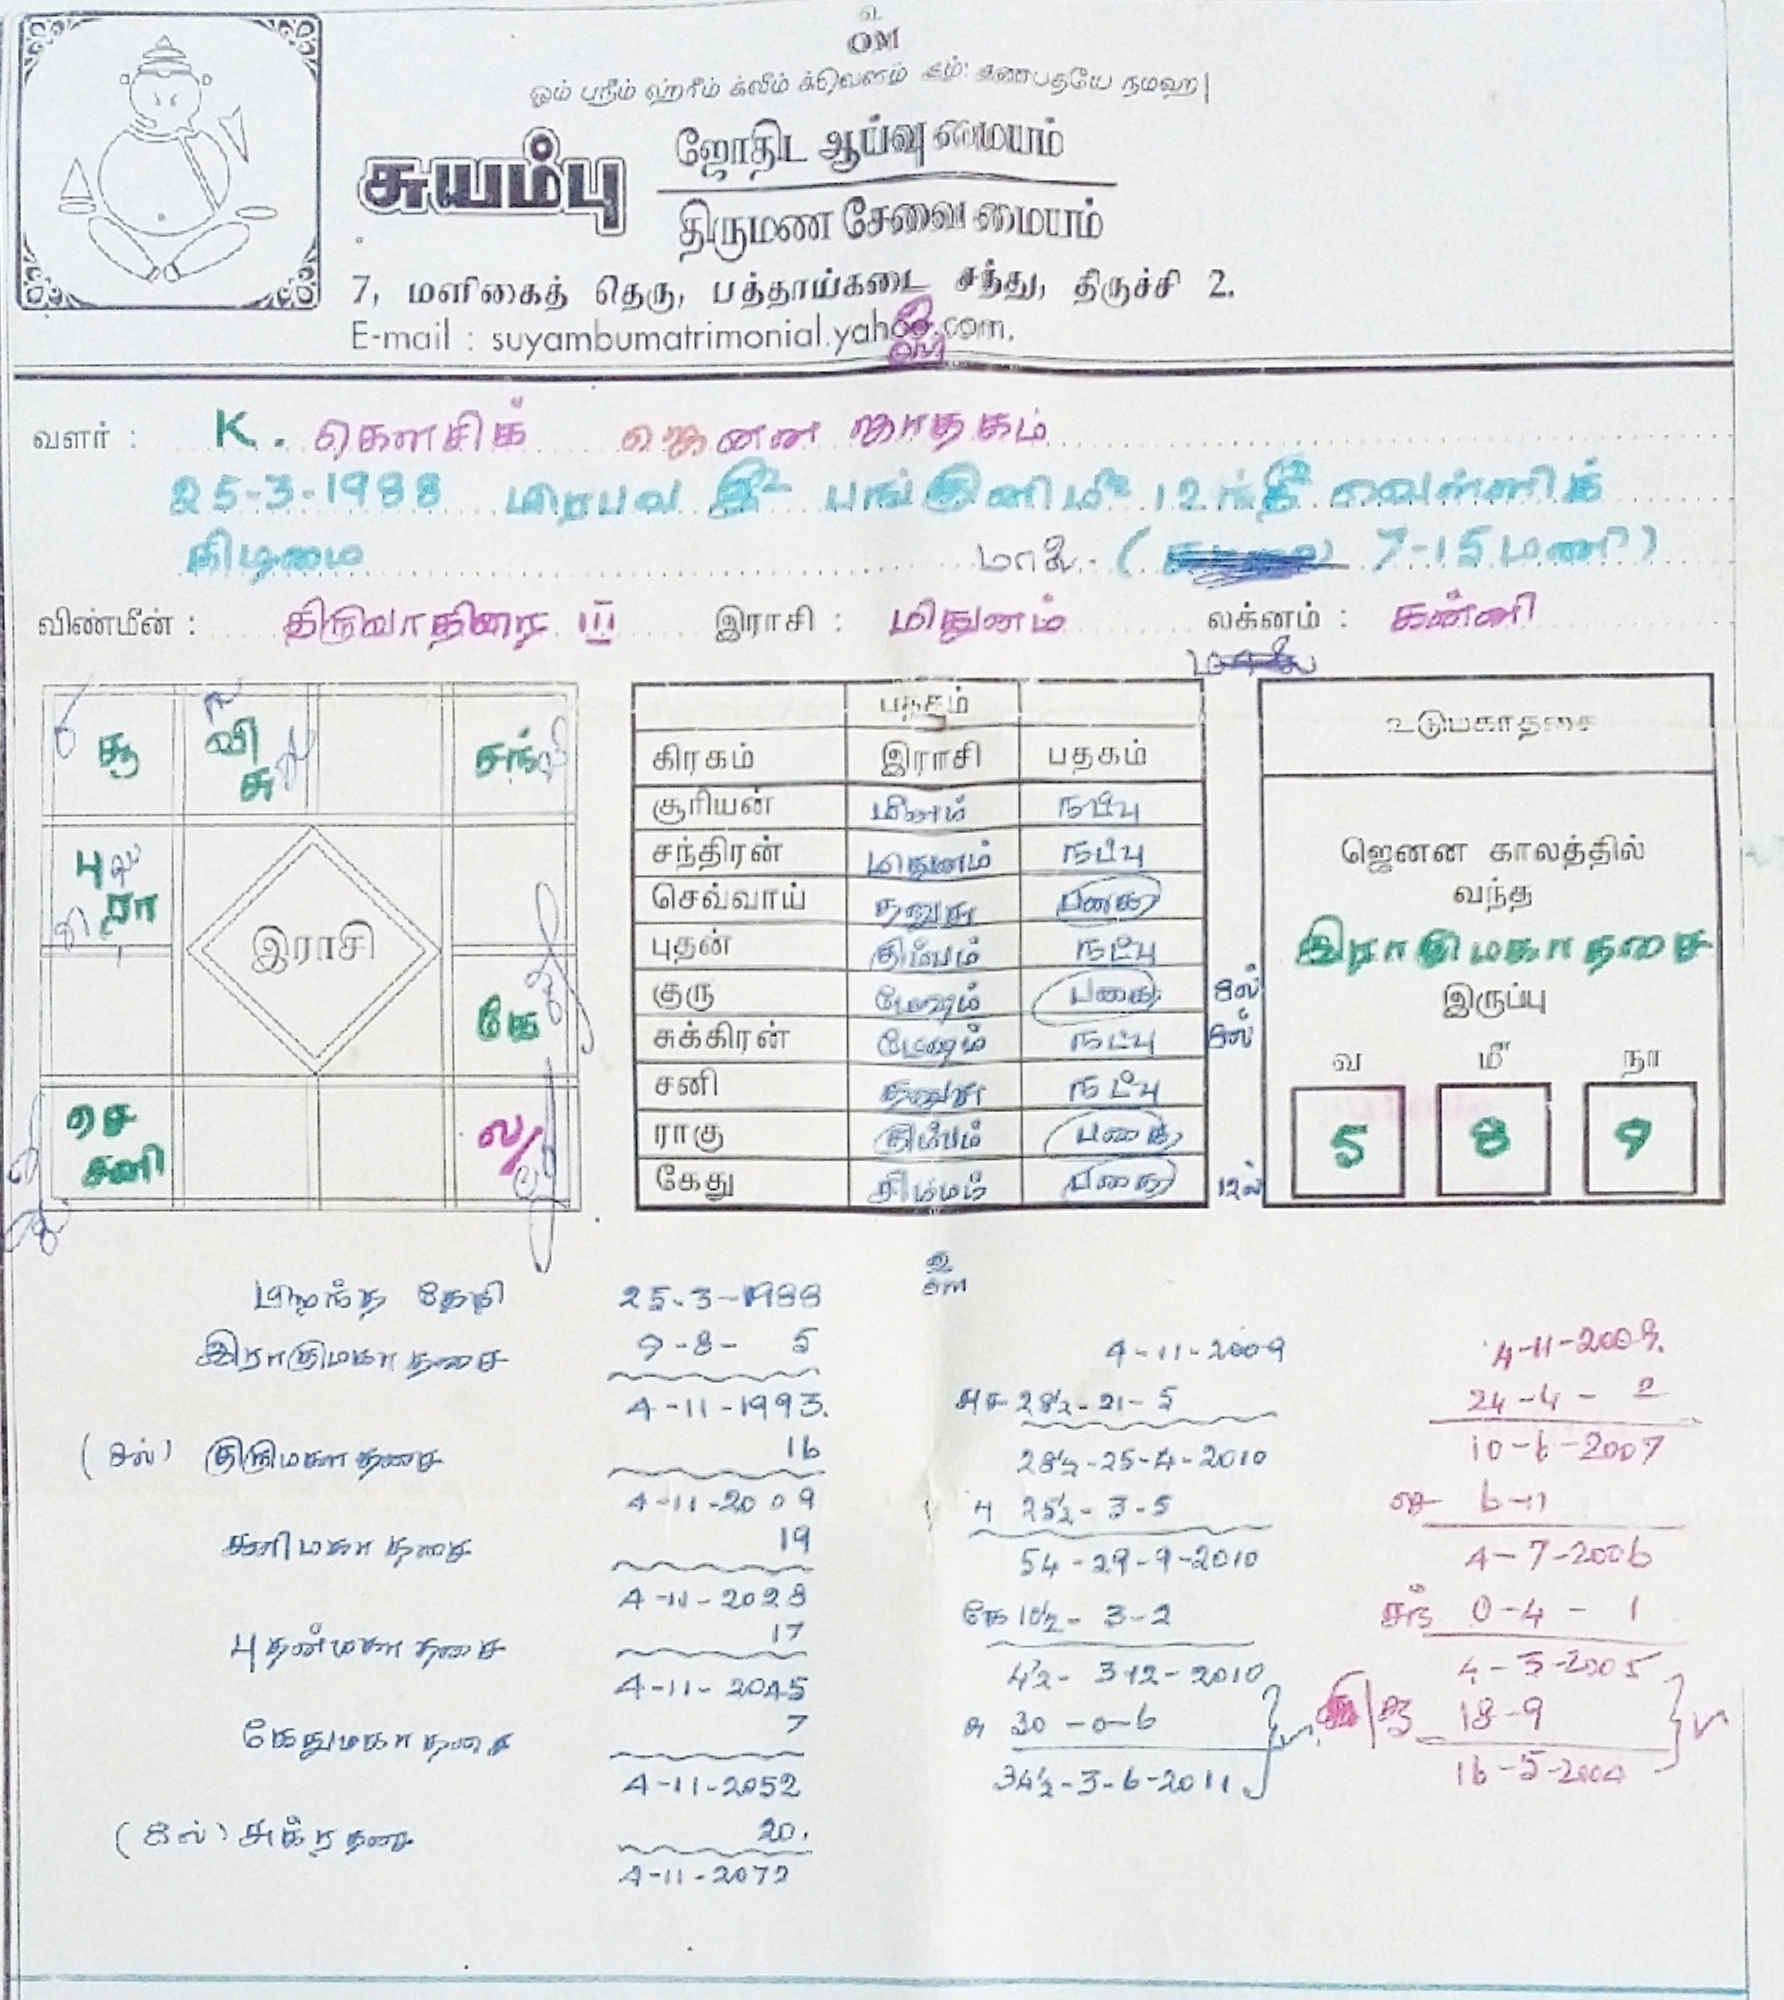 உ
OM
ஓம் ஸ்ரீம் ஹ்ரீம் க்லீம் க்லெளம் கம் கணபதயே நமஹ
சுயம்பு
ஜோதிட ஆய்வு மையம்
திருமண சேவை மையம்
7, மளிகைத் தெரு, பத்தாய்கடை சந்து, திருச்சி 2.
E-mail : suyambumatrimonial.yahoo.com.
வளர் : K. கௌசிக் ஜெனன ஜாதகம்
25-3-1988 பிரபவ பங்குனி 12ந்தி வெள்ளிக்
கிழமை மாலை (7-15 மணி)
விண்மீன் : திருவாதிரை III இராசி : மிதுனம் லக்னம் : கன்னி
சூ வி சு சந்
பு ரா
இராசி
கே
செ சனி
ல/
பதகம்
கிரகம் இராசி பதகம்
சூரியன் மீனம் நட்பு
சந்திரன் மிதுனம் நட்பு
செவ்வாய் தனுசு பகை
புதன் கும்பம் நட்பு
குரு மேஷம் பகை 8ல்
சுக்கிரன் மேஷம் நட்பு 8ல்
சனி தனுசு நட்பு
ராகு கும்பம் பகை
கேது சிம்மம் பகை 12ல்
உடுமகாதசை
ஜெனன காலத்தில்
வந்த
இராகுமகாதசை
இருப்பு
வ மீ நா
5 8 9
பிறந்த தேதி 25-3-1988
இராகுமகா தசை 9-8-5
4-11-1993.
(8ல்) குருமகா தசை 16
4-11-2009
சனிமகா தசை 19
4-11-2028
புதன்மகா தசை 17
4-11-2045
கேதுமகா தசை 7
4-11-2052
(8ல்) சுக்ர தசை 20.
4-11-2072
4-11-2009
28½-21-5
28½-25-4-2010
25½-3-5
54-29-9-2010
கே 10½-3-2
4½-3-12-2010
சு 30-0-6
34½-3-6-2011
4-11-2009.
24-4-2
10-6-2007
செ 6-11
4-7-2006
சந் 0-4-1
4-3-2005
18-9
16-5-2004